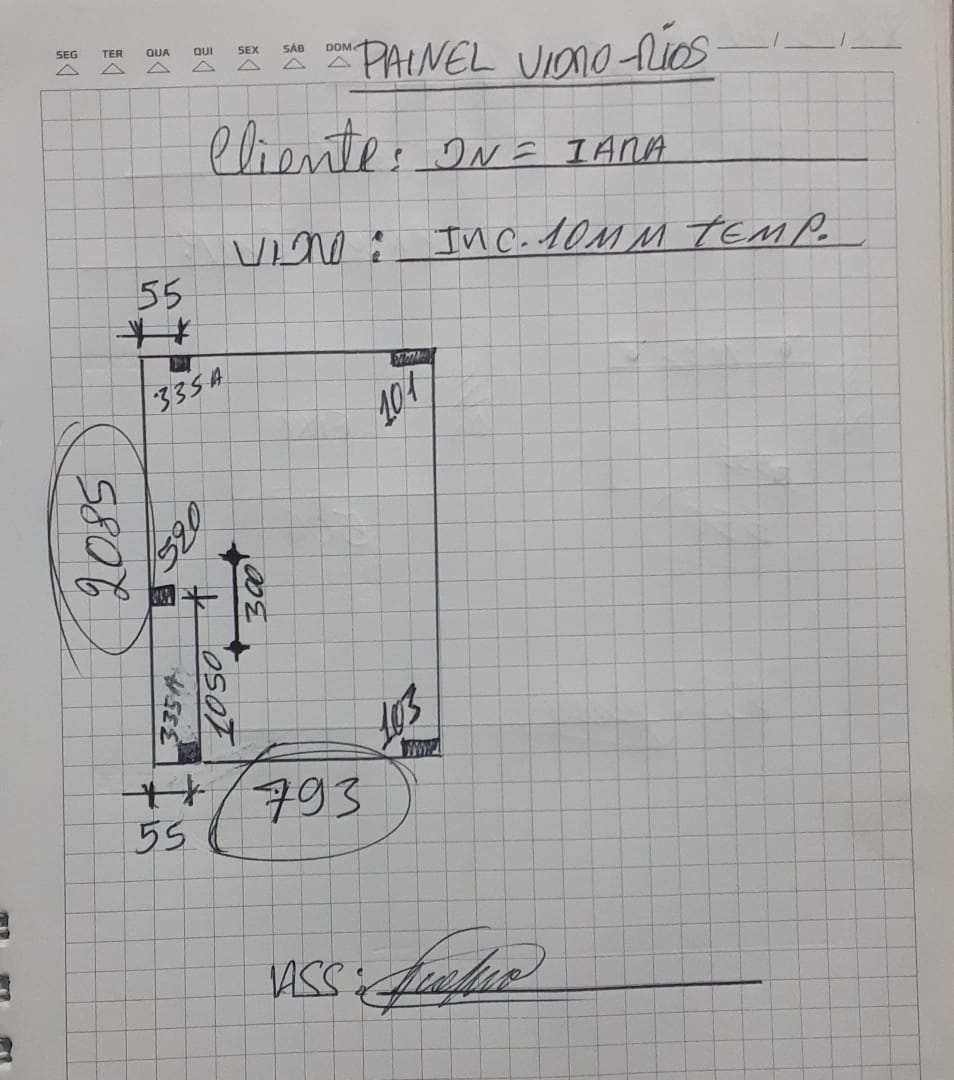 SEG TER QUA QUI SEX SÁB DOM
PAINEL VIDRO RIOS / /
Cliente: DN = IARA
VIDRO: INC. 10MM TEMP.
55
335A
101
2085
520
300
1050
335A
103
793
55
ASS: